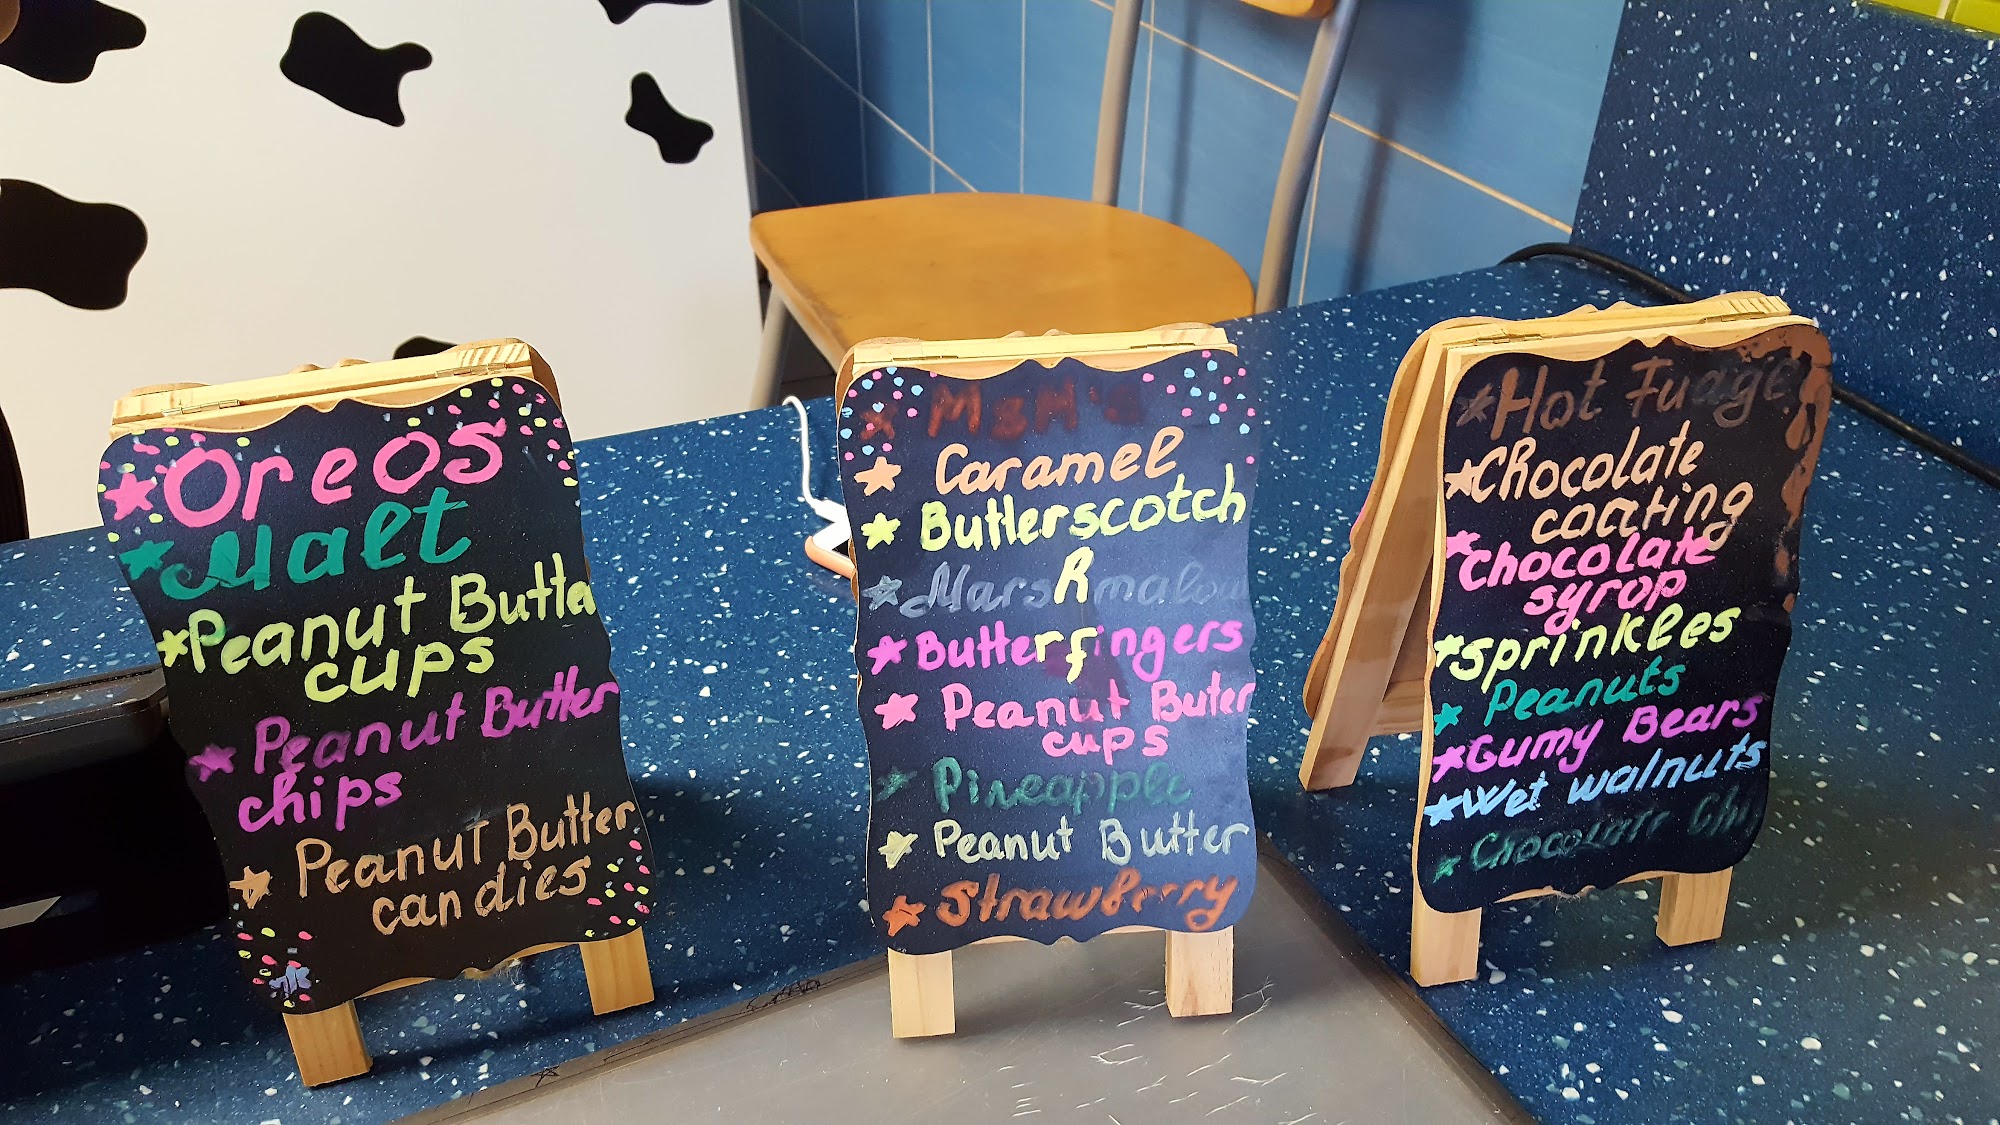 Oreos
Malt
Peanut Butter
cups
Peanut Butter
chips
Peanut Butter
candies
M&M's
Caramel
Butterscotch
Marshmalow
Butterfingers
Peanut Buter
cups
Pineapple
Peanut Butter
Strawberry
Hot Fudge
Chocolate
coating
Chocolate
syrop
Sprinkles
Peanuts
Gumy Bears
Wet walnuts
Chocolate Chip